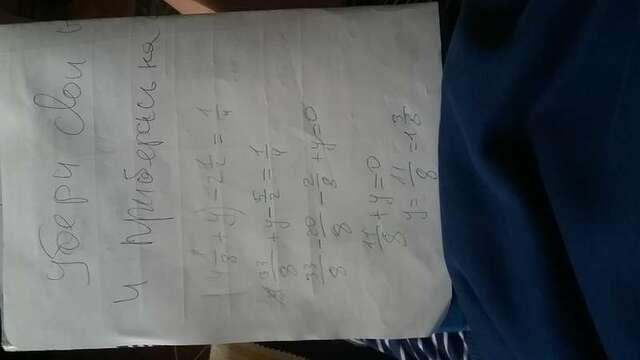 убери свои
и приберась на
(4 1/8 + y) - 2 1/2 = 1/4
33/8 + y - 5/2 = 1/4
33/8 - 20/8 - 2/8 + y = 0
11/8 + y = 0
y = 11/8 = 1 3/8